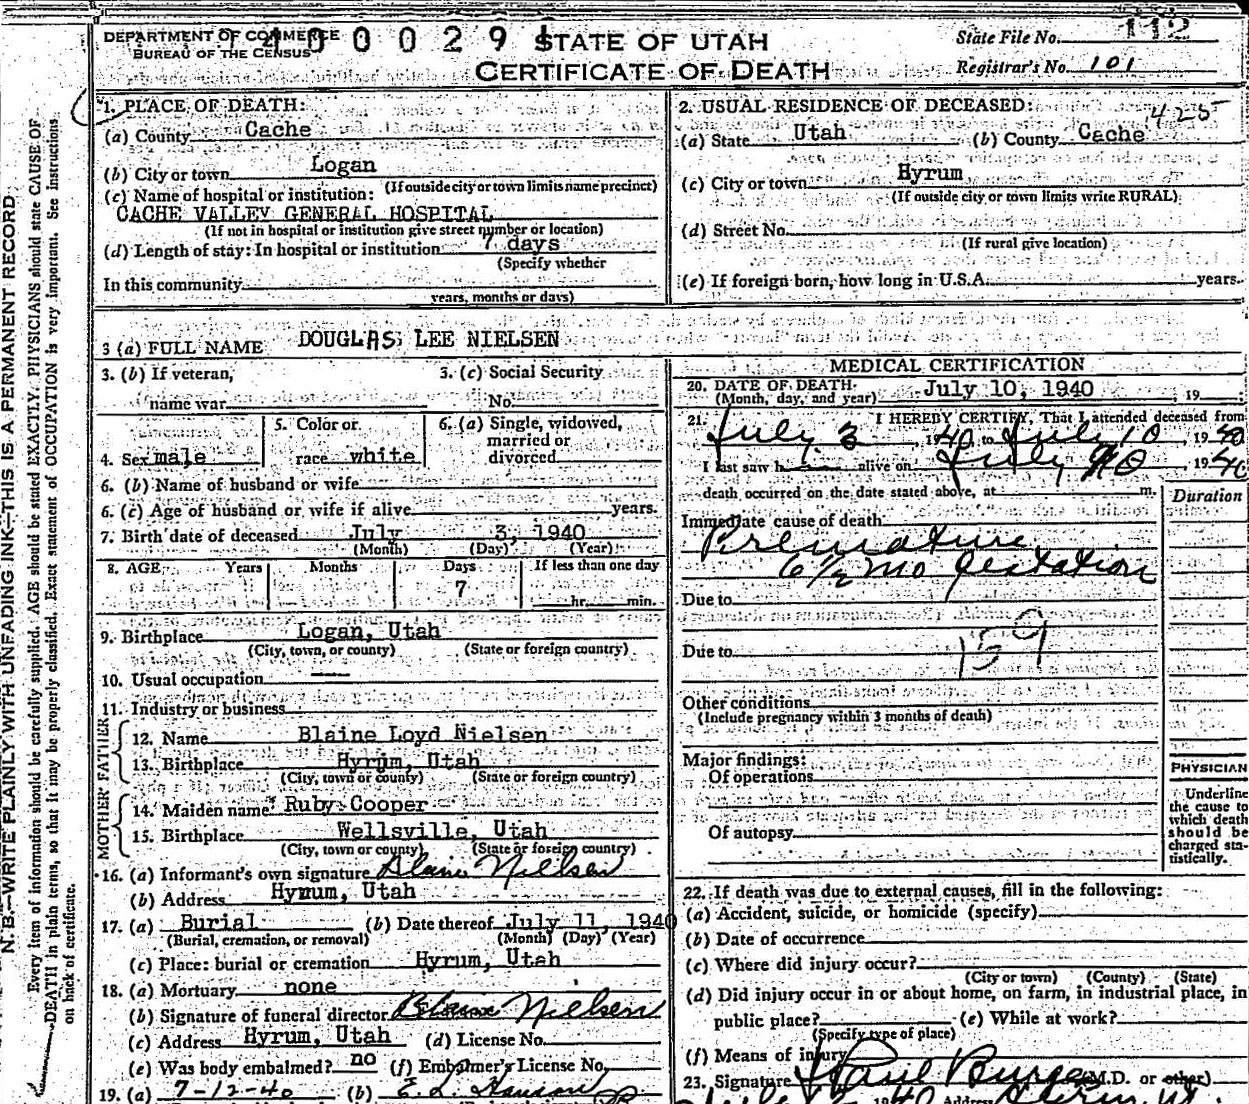 DEPARTMENT OF COMMERCE
BUREAU OF THE CENSUS
STATE OF UTAH
CERTIFICATE OF DEATH
State File No. 112
Registrar's No. 101
1. PLACE OF DEATH:
(a) County Cache
(b) City or town Logan
(If outside city or town limits name precinct)
(c) Name of hospital or institution:
CACHE VALLEY GENERAL HOSPITAL
(If not in hospital or institution give street number or location)
(d) Length of stay: In hospital or institution 7 days
(Specify whether
In this community
years, months or days)
2. USUAL RESIDENCE OF DECEASED: 425
(a) State Utah (b) County Cache
(c) City or town Hyrum
(If outside city or town limits write RURAL)
(d) Street No.
(If rural give location)
(e) If foreign born, how long in U.S.A. years.
3 (a) FULL NAME DOUGLAS LEE NIELSEN
3. (b) If veteran, 3. (c) Social Security
name war No.
4. Sex male
5. Color or
race white
6. (a) Single, widowed,
married or
divorced
6. (b) Name of husband or wife
6. (c) Age of husband or wife if alive years.
7. Birth date of deceased July 3, 1940
(Month) (Day) (Year)
8. AGE Years Months Days If less than one day
7 hr. min.
9. Birthplace Logan, Utah
(City, town, or county) (State or foreign country)
10. Usual occupation —
11. Industry or business
FATHER
12. Name Blaine Loyd Nielsen
13. Birthplace Hyrum, Utah
(City, town or county) (State or foreign country)
MOTHER
14. Maiden name Ruby Cooper
15. Birthplace Wellsville, Utah
(City, town or county) (State or foreign country)
16. (a) Informant's own signature Blaine Nielsen
(b) Address Hyrum, Utah
17. (a) Burial (b) Date thereof July 11, 1940
(Burial, cremation, or removal) (Month) (Day) (Year)
(c) Place: burial or cremation Hyrum, Utah
18. (a) Mortuary none
(b) Signature of funeral director Blaine Nielsen
(c) Address Hyrum, Utah (d) License No.
(e) Was body embalmed? no (f) Embalmer's License No.
19. (a) 7-12-40 (b) E. L. Hanson
MEDICAL CERTIFICATION
20. DATE OF DEATH: July 10, 1940, 19
(Month, day, and year)
21. I HEREBY CERTIFY, That I attended deceased from
July 3, 1940 to July 10, 1940
I last saw him alive on July 10 1940
death occurred on the date stated above, at m.
Duration
Immediate cause of death
Premature
6 1/2 mo gestation
Due to
159
Due to
Other conditions
(Include pregnancy within 3 months of death)
Major findings:
Of operations
Of autopsy
PHYSICIAN
Underline
the cause to
which death
should be
charged sta-
tistically.
22. If death was due to external causes, fill in the following:
(a) Accident, suicide, or homicide (specify)
(b) Date of occurrence
(c) Where did injury occur?
(City or town) (County) (State)
(d) Did injury occur in or about home, on farm, in industrial place, in
public place? (e) While at work?
(Specify type of place)
(f) Means of injury
23. Signature Paul Burge (M.D. or other)
1940 Address
N. B.—WRITE PLAINLY WITH UNFADING INK—THIS IS A PERMANENT RECORD
Every item of information should be carefully supplied. AGE should be stated EXACTLY. PHYSICIANS should state CAUSE OF
DEATH in plain terms, so that it may be properly classified. Exact statement of OCCUPATION is very important. See instructions
on back of certificate.